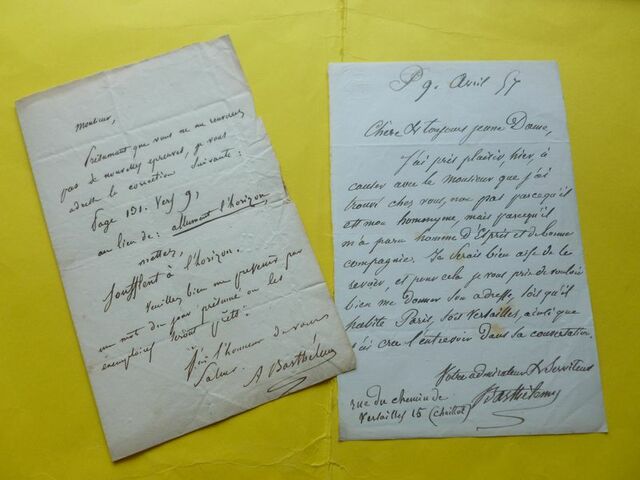 Monsieur,
Présumant que vous ne me renverrez
pas de nouvelles épreuves, je vous
adresse la correction suivante:
Page 131. Vers 9,
au lieu de: allument l'horizon,
mettez,
soufflent à l'horizon.
Veuillez bien me prévenir par
un mot du jour présumé où les
exemplaires seront prêts.
J'ai l'honneur de vous
saluer.
A Barthélemy
P 9. Avril 57
Chère & toujours jeune Dame,
J'ai pris plaisir, hier, à
causer avec le Monsieur que j'ai
trouvé chez vous, non pas parcequ'il
est mon homonyme, mais parcequ'il
m'a paru homme d'Esprit et de bonne
compagnie. Je serais bien aise de le
revoir, et pour cela je vous prie de vouloir
bien me donner son adresse, soit qu'il
habite Paris, soit Versailles, ainsi que
j'ai cru l'entrevoir dans sa conversation.
Votre admirateur & Serviteur
Barthélemy
rue du chemin de
Versailles 15 (chaillot)